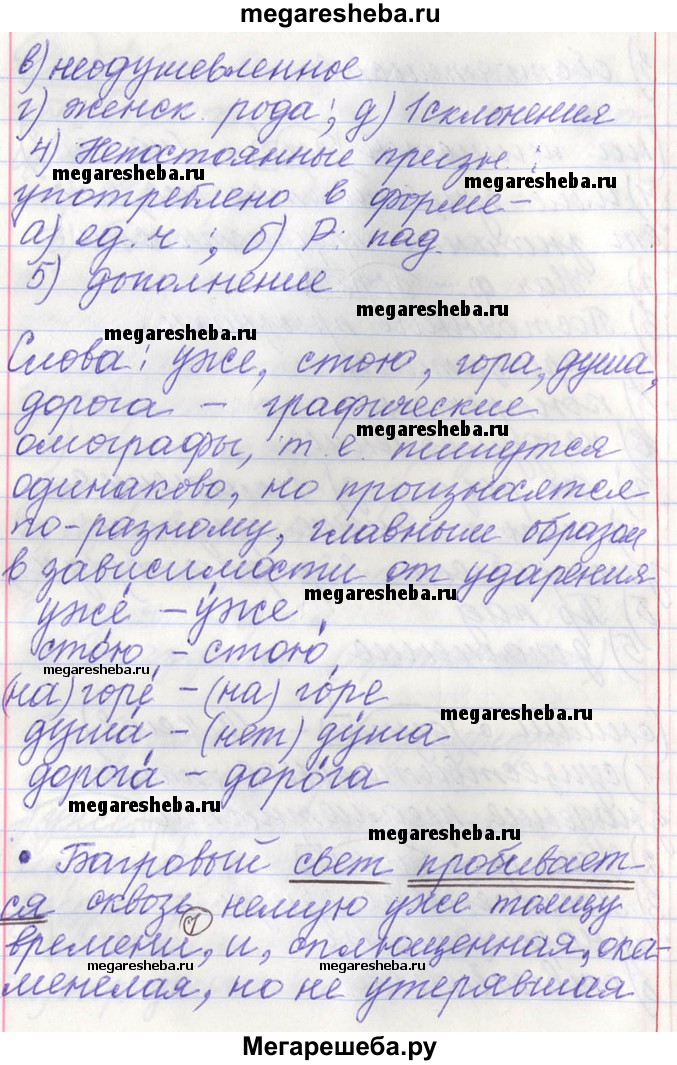 megaresheba.ru
в) неодушевленное
г) женск. рода; д) 1 склонения
4) Непостоянные призн.:
megaresheba.ru
megaresheba.ru
употреблено в форме-
а) ед. ч.; б) Р. пад.
5) дополнение
megaresheba.ru
megaresheba.ru
Слова: уже, стою, гора, душа,
дорога – графические
megaresheba.ru
омографы, т. е. пишутся
одинаково, но произносятся
по-разному, главным образом
в зависимости от ударения
megaresheba.ru
уже́ – у́же,
сто́ю, – стою́,
megaresheba.ru
(на) горе́ – (на) го́ре
megaresheba.ru
душа́ – (нет) ду́ша
дорога́ – доро́га
megaresheba.ru
megaresheba.ru
• Багровый свет пробивает-
ся сквозь немую уже толщу
1
времени, и, сплющенная, ока-
megaresheba.ru
megaresheba.ru
менелая, но не утерявшая
Мегарешеба.ру